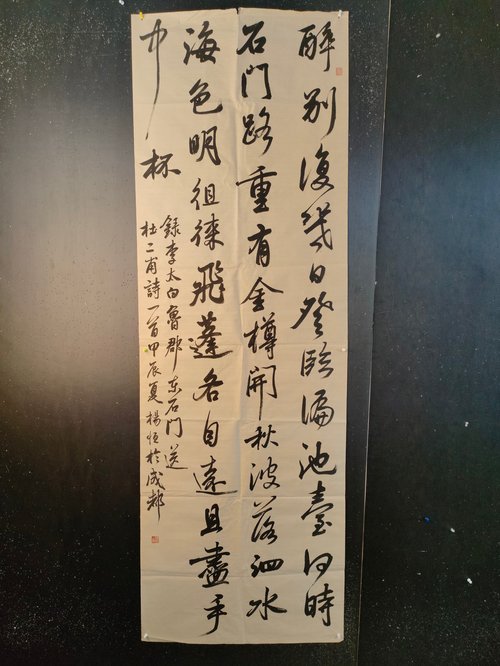 醉别復幾日登臨徧池臺何時
石門路重有金樽開秋波落泗水
海色明徂徠飛蓬各自遠且盡手
中杯
錄李太白魯郡东石門送
杜二甫詩一首甲辰夏楊恒於成都